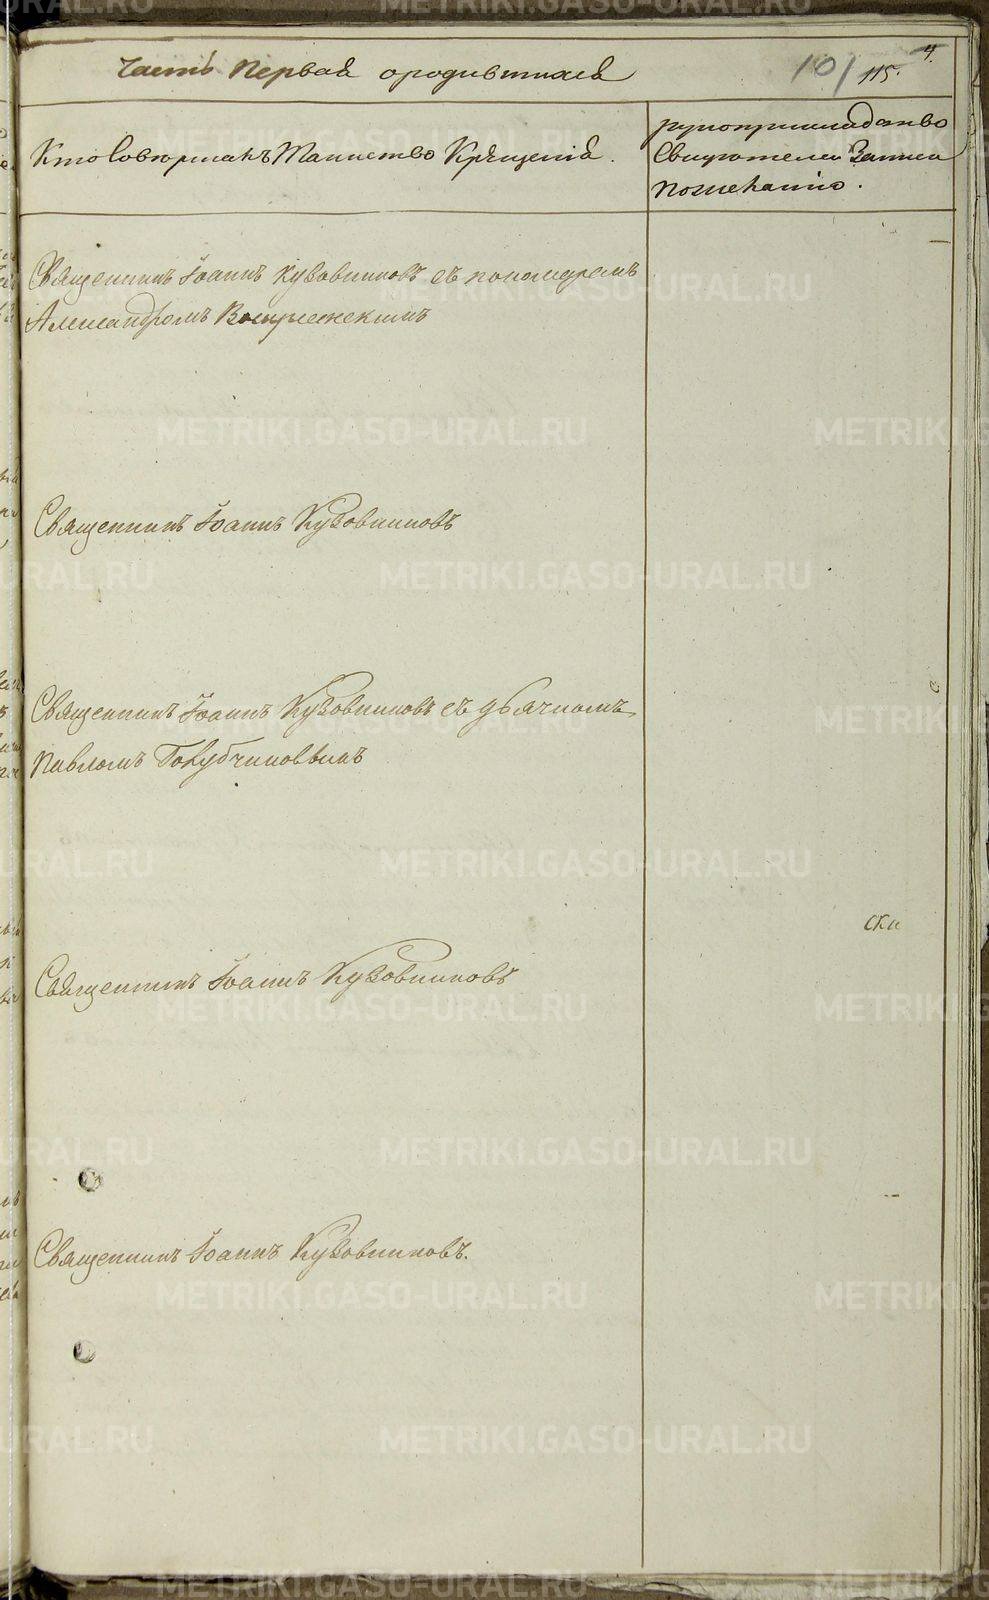 Часть Первая о родившихся
101 115. 4.
Кто Совершалъ Таинство Крещенія.
рукоприкладство
Свидѣтелей Записи
по желанію.
Священникъ Іоаннъ Кузовниковъ съ пономаремъ
Александромъ
Священникъ Іоаннъ Кузовниковъ
Священникъ Іоаннъ Кузовниковъ съ дьячкомъ
Павломъ Голубчиковымъ
Священникъ Іоаннъ Кузовниковъ
Священникъ Іоаннъ Кузовниковъ.
METRIKI.GASO-URAL.RU